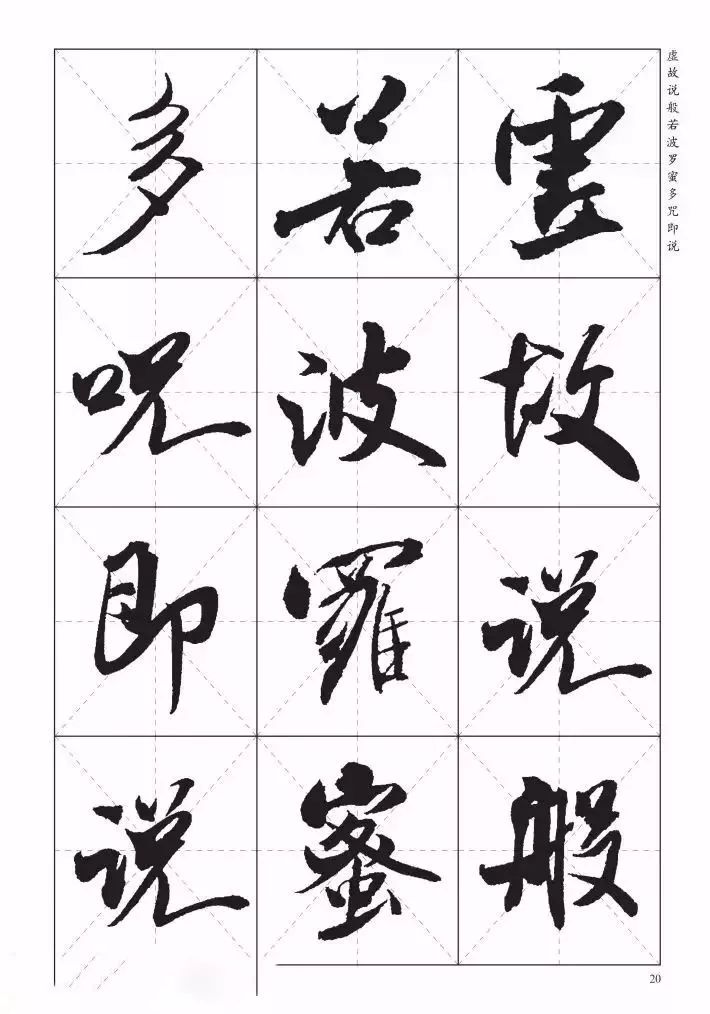 虚故说般若波罗蜜多咒即说
虚故说般
若波羅蜜
多呪即说
20